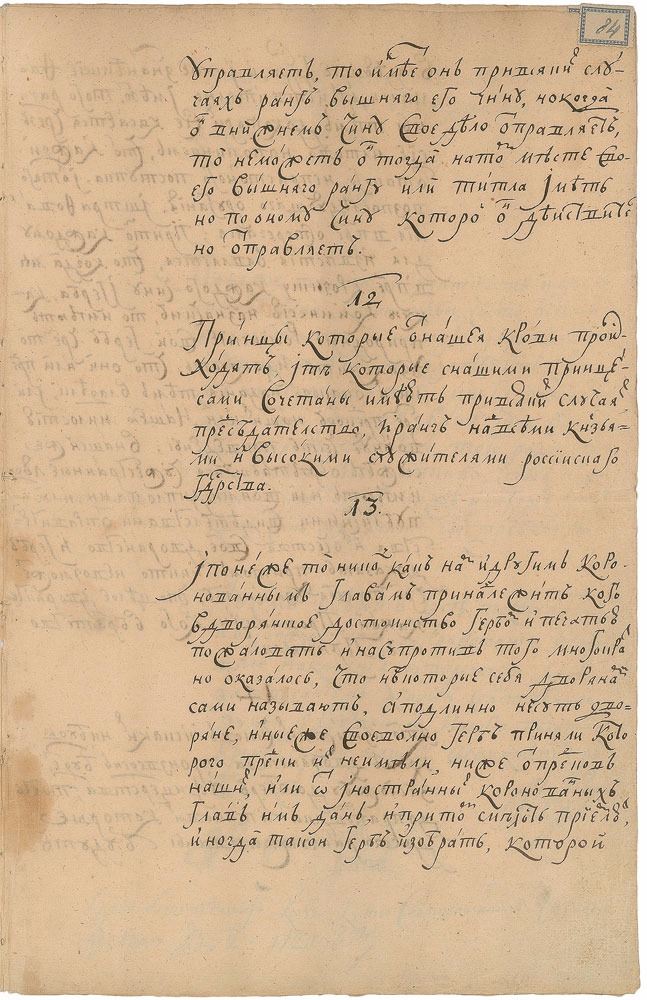 84
управляетъ, то имѣе онъ при всяки слу-
чаяхъ рангъ вышняго его чину, но когда
о в нижнемъ чину свое дѣло отправляетъ,
то неможетъ о тогда на то мѣсте сво-
его вышняго рангу или титла імѣть
но по оному чину которо о дѣиствите
но отправляетъ.
12
Принцы которые от нашея крови проис-
ходятъ, і тѣ которые с нашими принце-
сами сочетаны имѣютъ при всяки случая
предсѣдателство, и рангъ над всѣми князья-
ми и высокими служителями россиского
гдрства.
13.
і понеже то никому какъ на и другимъ коро-
нованнымъ главамъ приналежитъ кого
в дворянное достоинство гербо и печатью
пожаловать и насупротивъ того многокра
но оказалось, что некоторые себя дворяна
сами называютъ, а подлинно несуть дво-
ряне, иныеже своеволно гербъ приняли кото-
рого предки и неимѣли, ниже от предковъ
наши, или от іностранны коронованыхъ
главъ имъ данъ, и прито смѣлость приемлю
иногда такои гербъ изобрать, которой